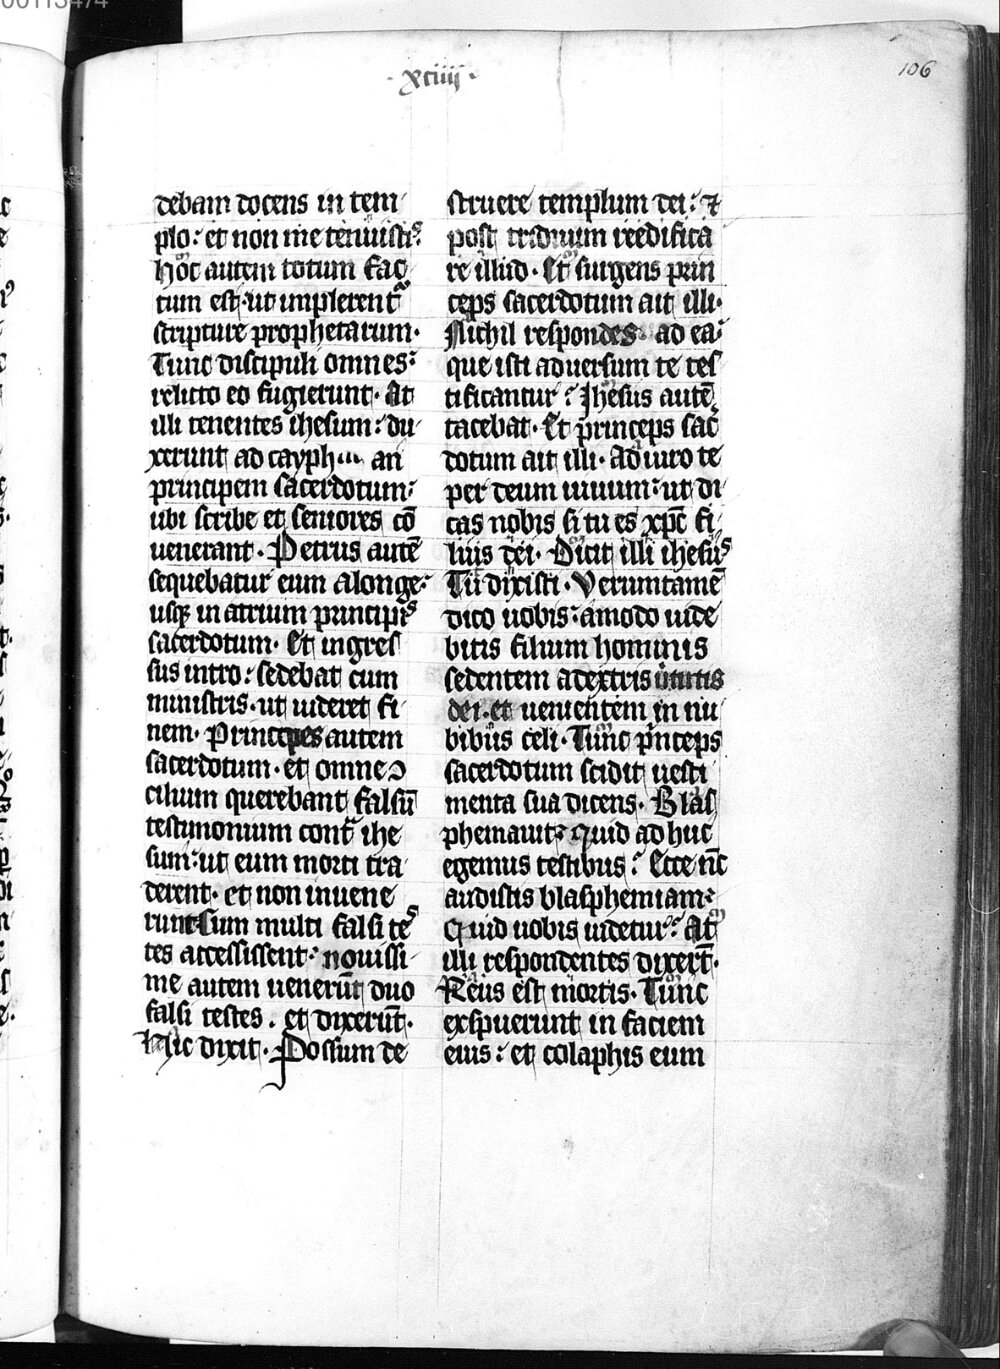 00113474
· xciiij ·
106
debam docens in tem
plo: et non me tenuistis.
Hoc autem totum fac
tum est· ut implerentᷓ
scripture prophetarum·
Tunc discipuli omnes:
relicto eo fugierunt· At
illi tenentes ihesum: du
xerunt ad cayph an
principem sacerdotum:
ubi scribe et seniores cō
uenerant· Petrus autē
sequebatur eum alonge:
usqꝫ in atrium principis
sacerdotum· Et ingres
sus intro: sedebat cum
ministris· ut uideret fi
nem· Principes autem
sacerdotum· et omne ꝯ
cilium querebant falsū
testimonium contᷓ ihe
sum: ut eum morti tra
derent· et non inuene
runt Cum multi falsi tes
tes accessissent: nouissi
me autem uenerūt duo
falsi testes· et dixerūt·
Hic dixit· Possum de
struere templum dei: ⁊
post triduum reedifica
re illud· Et surgens prin
ceps sacerdotum ait illi·
Nichil respondes ad ea:
que isti aduersum te tes
tificantur? Jhesus autē
tacebat· Et princeps sac̄
dotum ait illi· Adiuro te
per deum uiuum: ut di
cas nobis si tu es xp̄c fi
lius dei· Dicit illi ihesus
Tu dixisti· Verumtamē
dico uobis: amodo uide
bitis filium hominis
sedentem adextris uirtutis
dei· et uenientem in nu
bibus celi· Tunc pͥnceps
sacerdotum scidit uesti
menta sua dicens· Blas
phemauit: quid ad huc
egemus testibus? Ecce nc̄
audistis blasphemiam:
Quid uobis uidetur? At
illi respondentes dixert̄·
Reus est mortis· Tunc
exspuerunt in faciem
eius: et colaphis eum